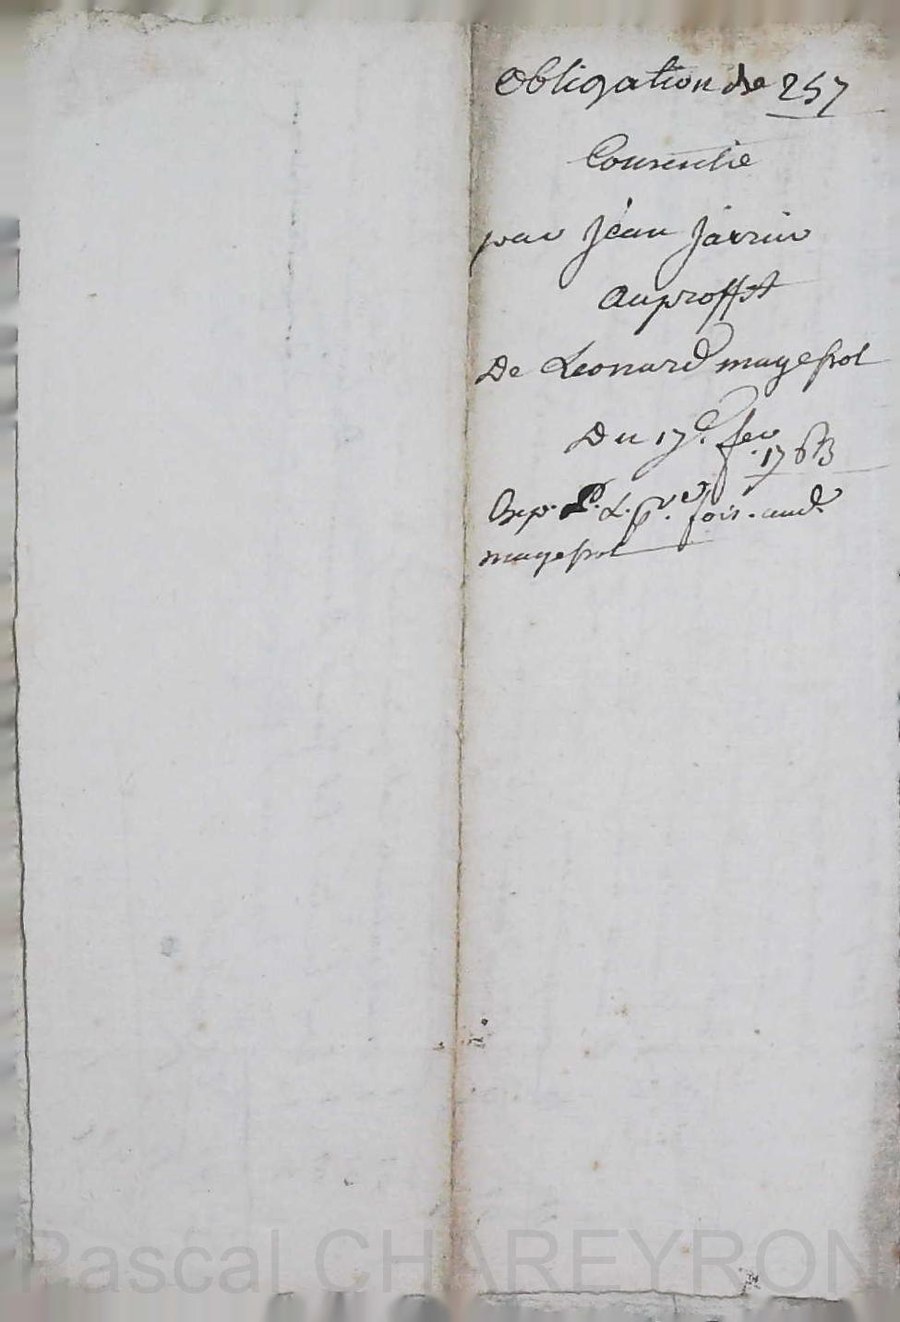 Obligation de 257
Consentie
par Jean Jarrin
au proffit
De Leonard mayefrol
Du 17e. fev
1763
Exp. P. L. pr. fois. aud.
mayefrol
Pascal CHAREYRON